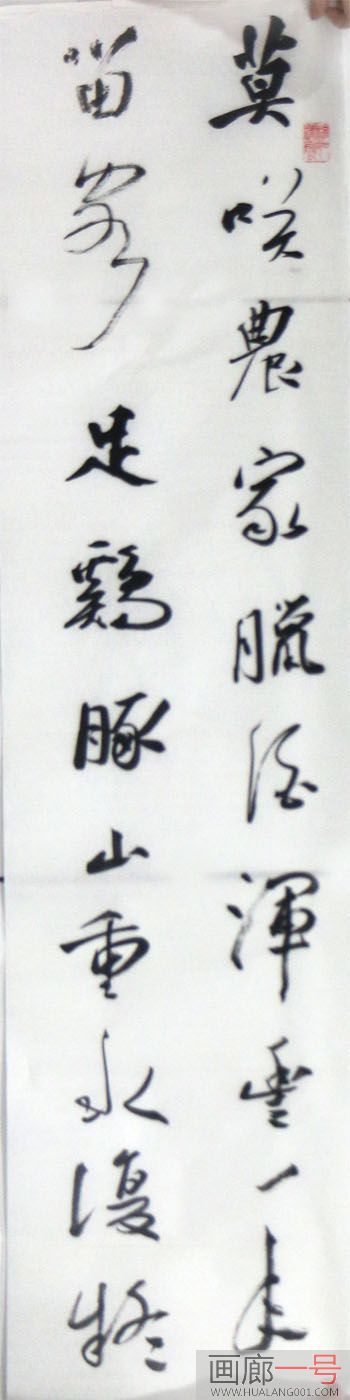 莫咲農家臘酒渾豐年
留客足鷄豚山重水復疑
画廊一号
WWW.HUALANG001.COM